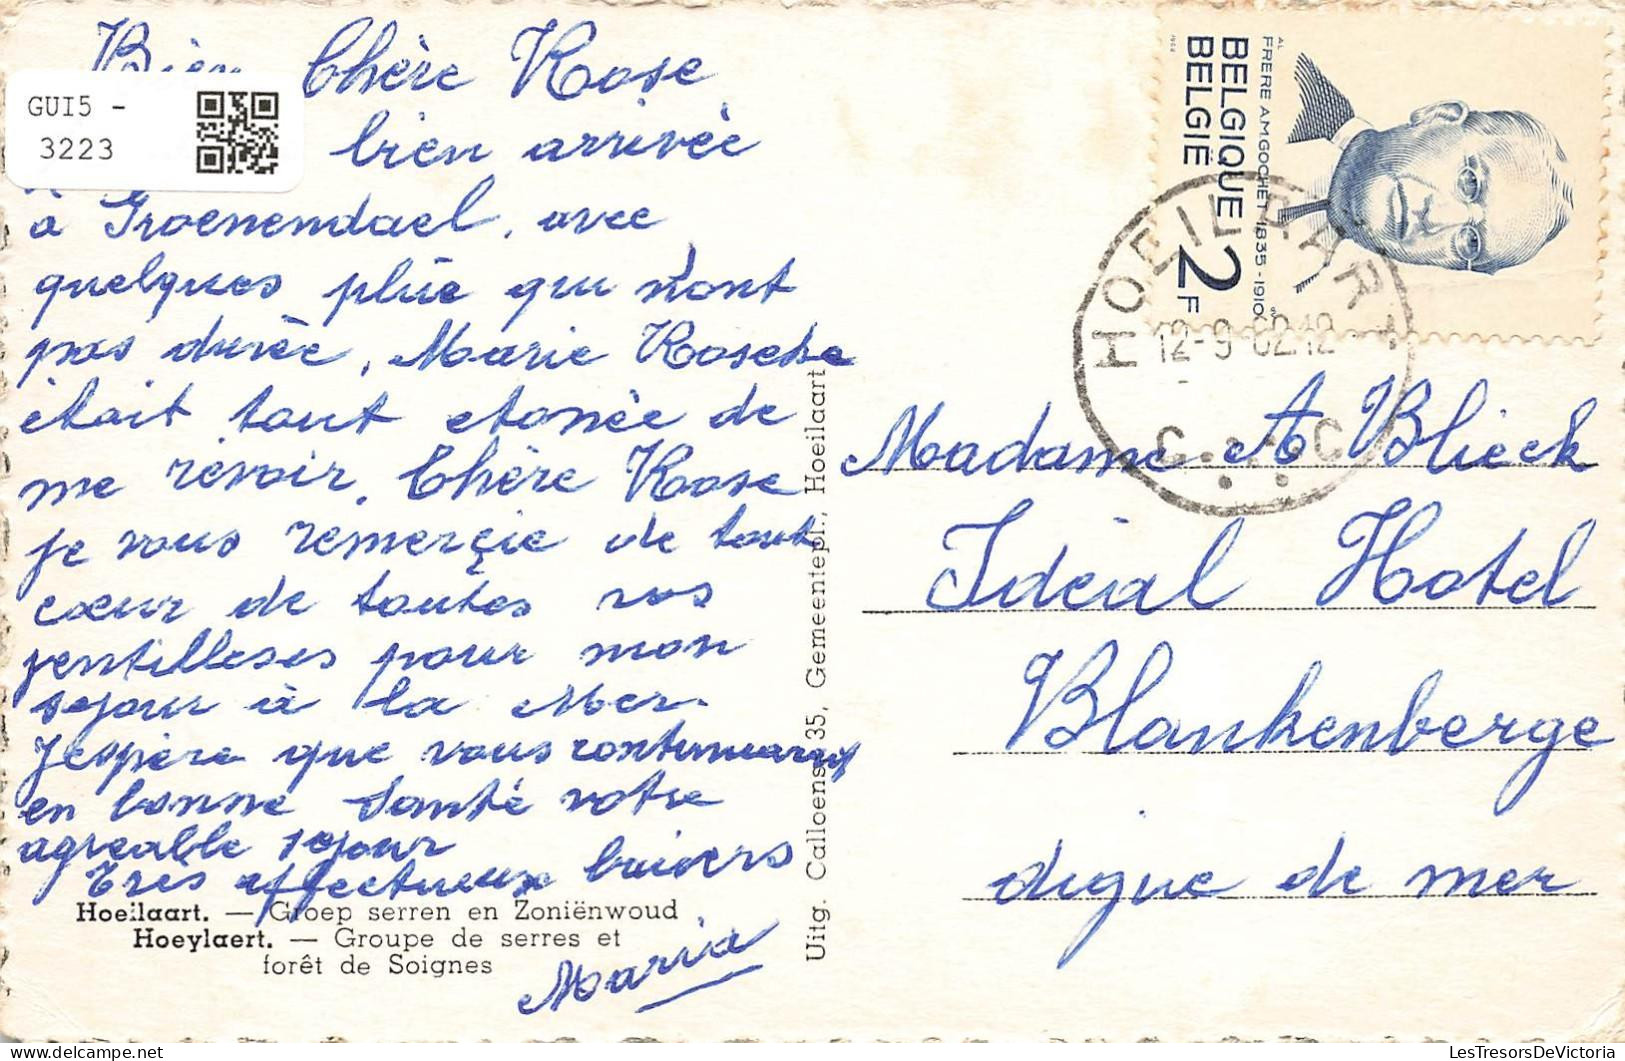 GUI5 -
3223
Bien Chère Rose
bien arrivée
à Groenendael, avec
quelques pluie qui n'ont
pas durée, Marie Roseke
était tout etonée de
me revoir, Chère Rose
je vous remerçie de tout
cœur de toutes vos
jentilleses pour mon
sejour à la Mer.
J'espère que vous continuerez
en bonne santé votre
agreable sejour
Très affectueux baisers
Maria
Hoeilaart. — Groep serren en Zoniënwoud
Hoeylaert. — Groupe de serres et
forêt de Soignes
Uitg. Calloens, 35, Gemeentepl., Hoeilaart
BELGIQUE
BELGIË
2F
FRERE A.M.GOCHET 1835-1910
1962
HOEILAART
12-9-62 12
C C
Madame A Blieck
Idéal Hotel
Blankenberge
digue de mer
LesTresorsDeVictoria